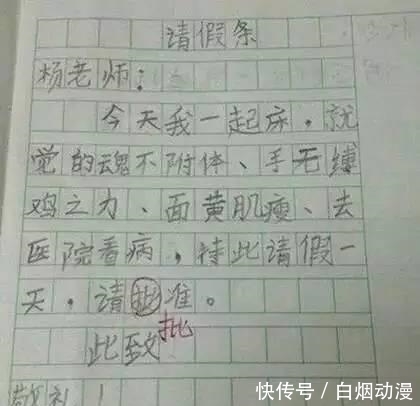 请假条
杨老师：
今天我一起床，就
觉的魂不附体、手无缚
鸡之力、面黄肌瘦、去
医院看病，特此请假一
天，请批准。
批
此致
敬礼！
快传号/白烟动漫